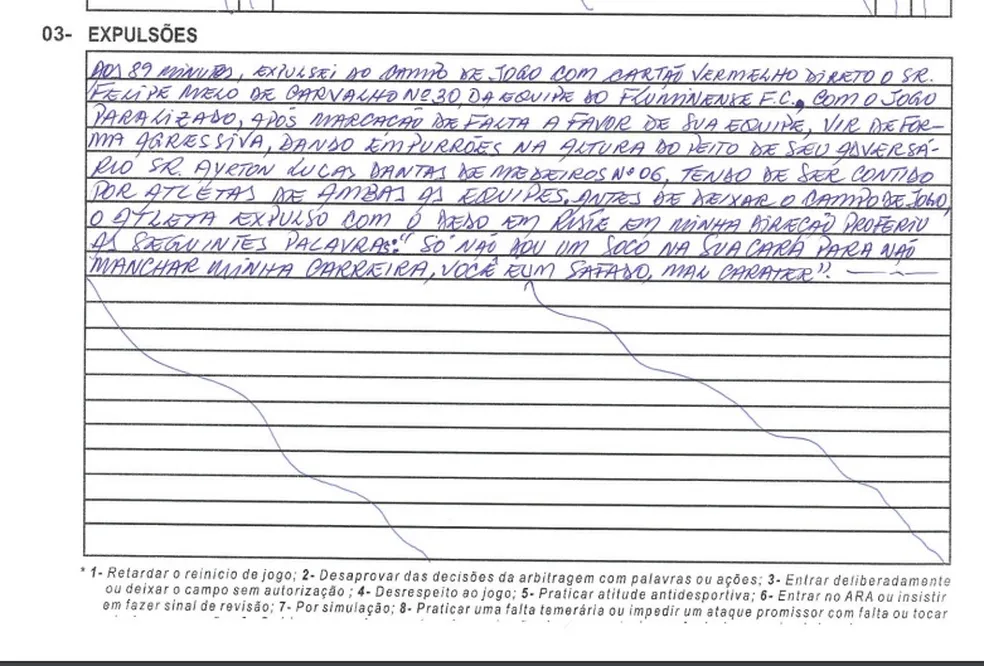 03- EXPULSÕES
AOS 89 MINUTOS, EXPULSEI DO CAMPO DE JOGO COM CARTÃO VERMELHO DIRETO O SR.
FELIPE MELO DE CARVALHO Nº 30, DA EQUIPE DO FLUMINENSE F.C., COM O JOGO
PARALIZADO, APÓS MARCAÇÃO DE FALTA A FAVOR DE SUA EQUIPE, VIR DE FOR-
MA AGRESSIVA, DANDO EMPURRÕES NA ALTURA DO PEITO DE SEU ADVERSÁ-
RIO SR. AYRTON LUCAS DANTAS DE MEDEIROS Nº 06, TENDO DE SER CONTIDO
POR ATLÉTAS DE AMBAS AS EQUIPES. ANTES DE DEIXAR O CAMPO DE JOGO,
O ATLETA EXPULSO COM O DEDO EM RISTE EM MINHA DIREÇÃO PROFERIU
AS SEGUINTES PALAVRAS: "SÓ NÃO DOU UM SOCO NA SUA CARA PARA NÃO
MANCHAR MINHA CARREIRA, VOCÊ É UM SAFADO, MAU CARATER".
* 1- Retardar o reinicio de jogo; 2- Desaprovar das decisões da arbitragem com palavras ou ações; 3- Entrar deliberadamente
ou deixar o campo sem autorização ; 4- Desrespeito ao jogo; 5- Praticar atitude antidesportiva; 6- Entrar no ARA ou insistir
em fazer sinal de revisão; 7- Por simulação; 8- Praticar uma falta temerária ou impedir um ataque promissor com falta ou tocar